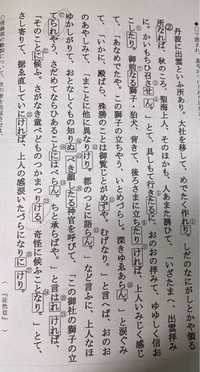 丹波に出雲といふ所あり。大社を移して、めでたく作れり。しだのなにがしとかや領る
所なれば、秋のころ、聖海上人、そのほかも、人あまた誘ひて、「いざたまへ、出雲拝み
に。かいもちひ召させん。」とて、具しもて行きたるに、おのおの拝みて、ゆゆしく信お
こしたり。御前なる獅子・狛犬、背きて、後ろさまに立ちたりければ、上人いみじく感じ
て、「あなめでたや。この獅子の立ちやう、いとめづらし。深きゆゑあらん。」と涙ぐみ
て、「いかに、殿ばら、殊勝のことは御覧じとがめずや。むげなり。」と言へば、おのお
のあやしみて、「まことに他に異なりけり。都のつとに語らん。」など言ふに、上人なほ
ゆかしがりて、おとなしくもの知りぬべき顔したる神官を呼びて、「この御社の獅子の立
てられやう、さだめてならひあることにはべらん。ちと承らばや。」と言はれければ、
「そのことに候ふ。さがなき童べどものつかまつりける、奇怪に候ふことなり。」とて、
さし寄りて、据ゑ直していにければ、上人の感涙いたづらになりにけり。
（『徒然草』）